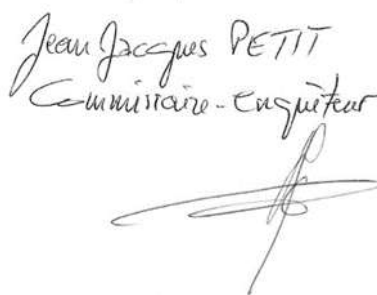 Jean Jacques PETIT
Commissaire-enquêteur